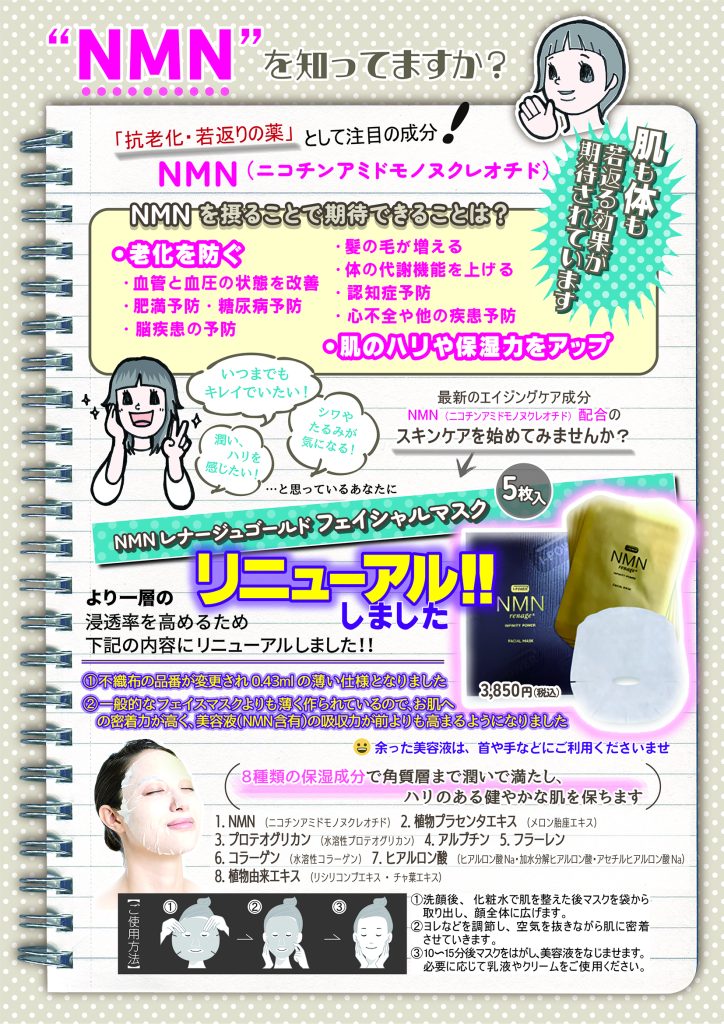 “NMN”を知ってますか?
「抗老化・若返りの薬」として注目の成分!
NMN(ニコチンアミドモノヌクレオチド)
肌も体も
若返る効果が
期待されています
NMNを摂ることで期待できることは?
・老化を防ぐ
・血管と血圧の状態を改善
・肥満予防・糖尿病予防
・脳疾患の予防
・髪の毛が増える
・体の代謝機能を上げる
・認知症予防
・心不全や他の疾患予防
・肌のハリや保湿力をアップ
いつまでも
キレイでいたい!
シワや
たるみが
気になる!
潤い、
ハリを
感じたい!
…と思っているあなたに
最新のエイジングケア成分
NMN(ニコチンアミドモノヌクレオチド)配合の
スキンケアを始めてみませんか?
5枚入
NMNレナージュゴールド フェイシャルマスク
リニューアル!!
しました
より一層の
浸透率を高めるため
下記の内容にリニューアルしました!!
NMN
renage+
INFINITY POWER
FACIAL MASK
NMN
renage+
INFINITY POWER
FACIAL MASK
3,850円(税込)
①不織布の品番が変更され0.43mlの薄い仕様となりました
②一般的なフェイスマスクよりも薄く作られているので、お肌へ
の密着力が高く、美容液(NMN含有)の吸収力が前よりも高まるようになりました
余った美容液は、首や手などにご利用くださいませ
8種類の保湿成分で角質層まで潤いで満たし、
ハリのある健やかな肌を保ちます
1. NMN (ニコチンアミドモノヌクレオチド) 2. 植物プラセンタエキス (メロン胎座エキス)
3. プロテオグリカン (水溶性プロテオグリカン) 4. アルブチン 5. フラーレン
6. コラーゲン (水溶性コラーゲン) 7. ヒアルロン酸 (ヒアルロン酸Na・加水分解ヒアルロン酸・アセチルヒアルロン酸Na)
8. 植物由来エキス (リシリコンブエキス・チャ葉エキス)
【ご使用方法】
① ② ③
①洗顔後、化粧水で肌を整えた後マスクを袋から
取り出し、顔全体に広げます。
②ヨレなどを調節し、空気を抜きながら肌に密着
させていきます。
③10〜15分後マスクをはがし、美容液をなじませます。
必要に応じて乳液やクリームをご使用ください。